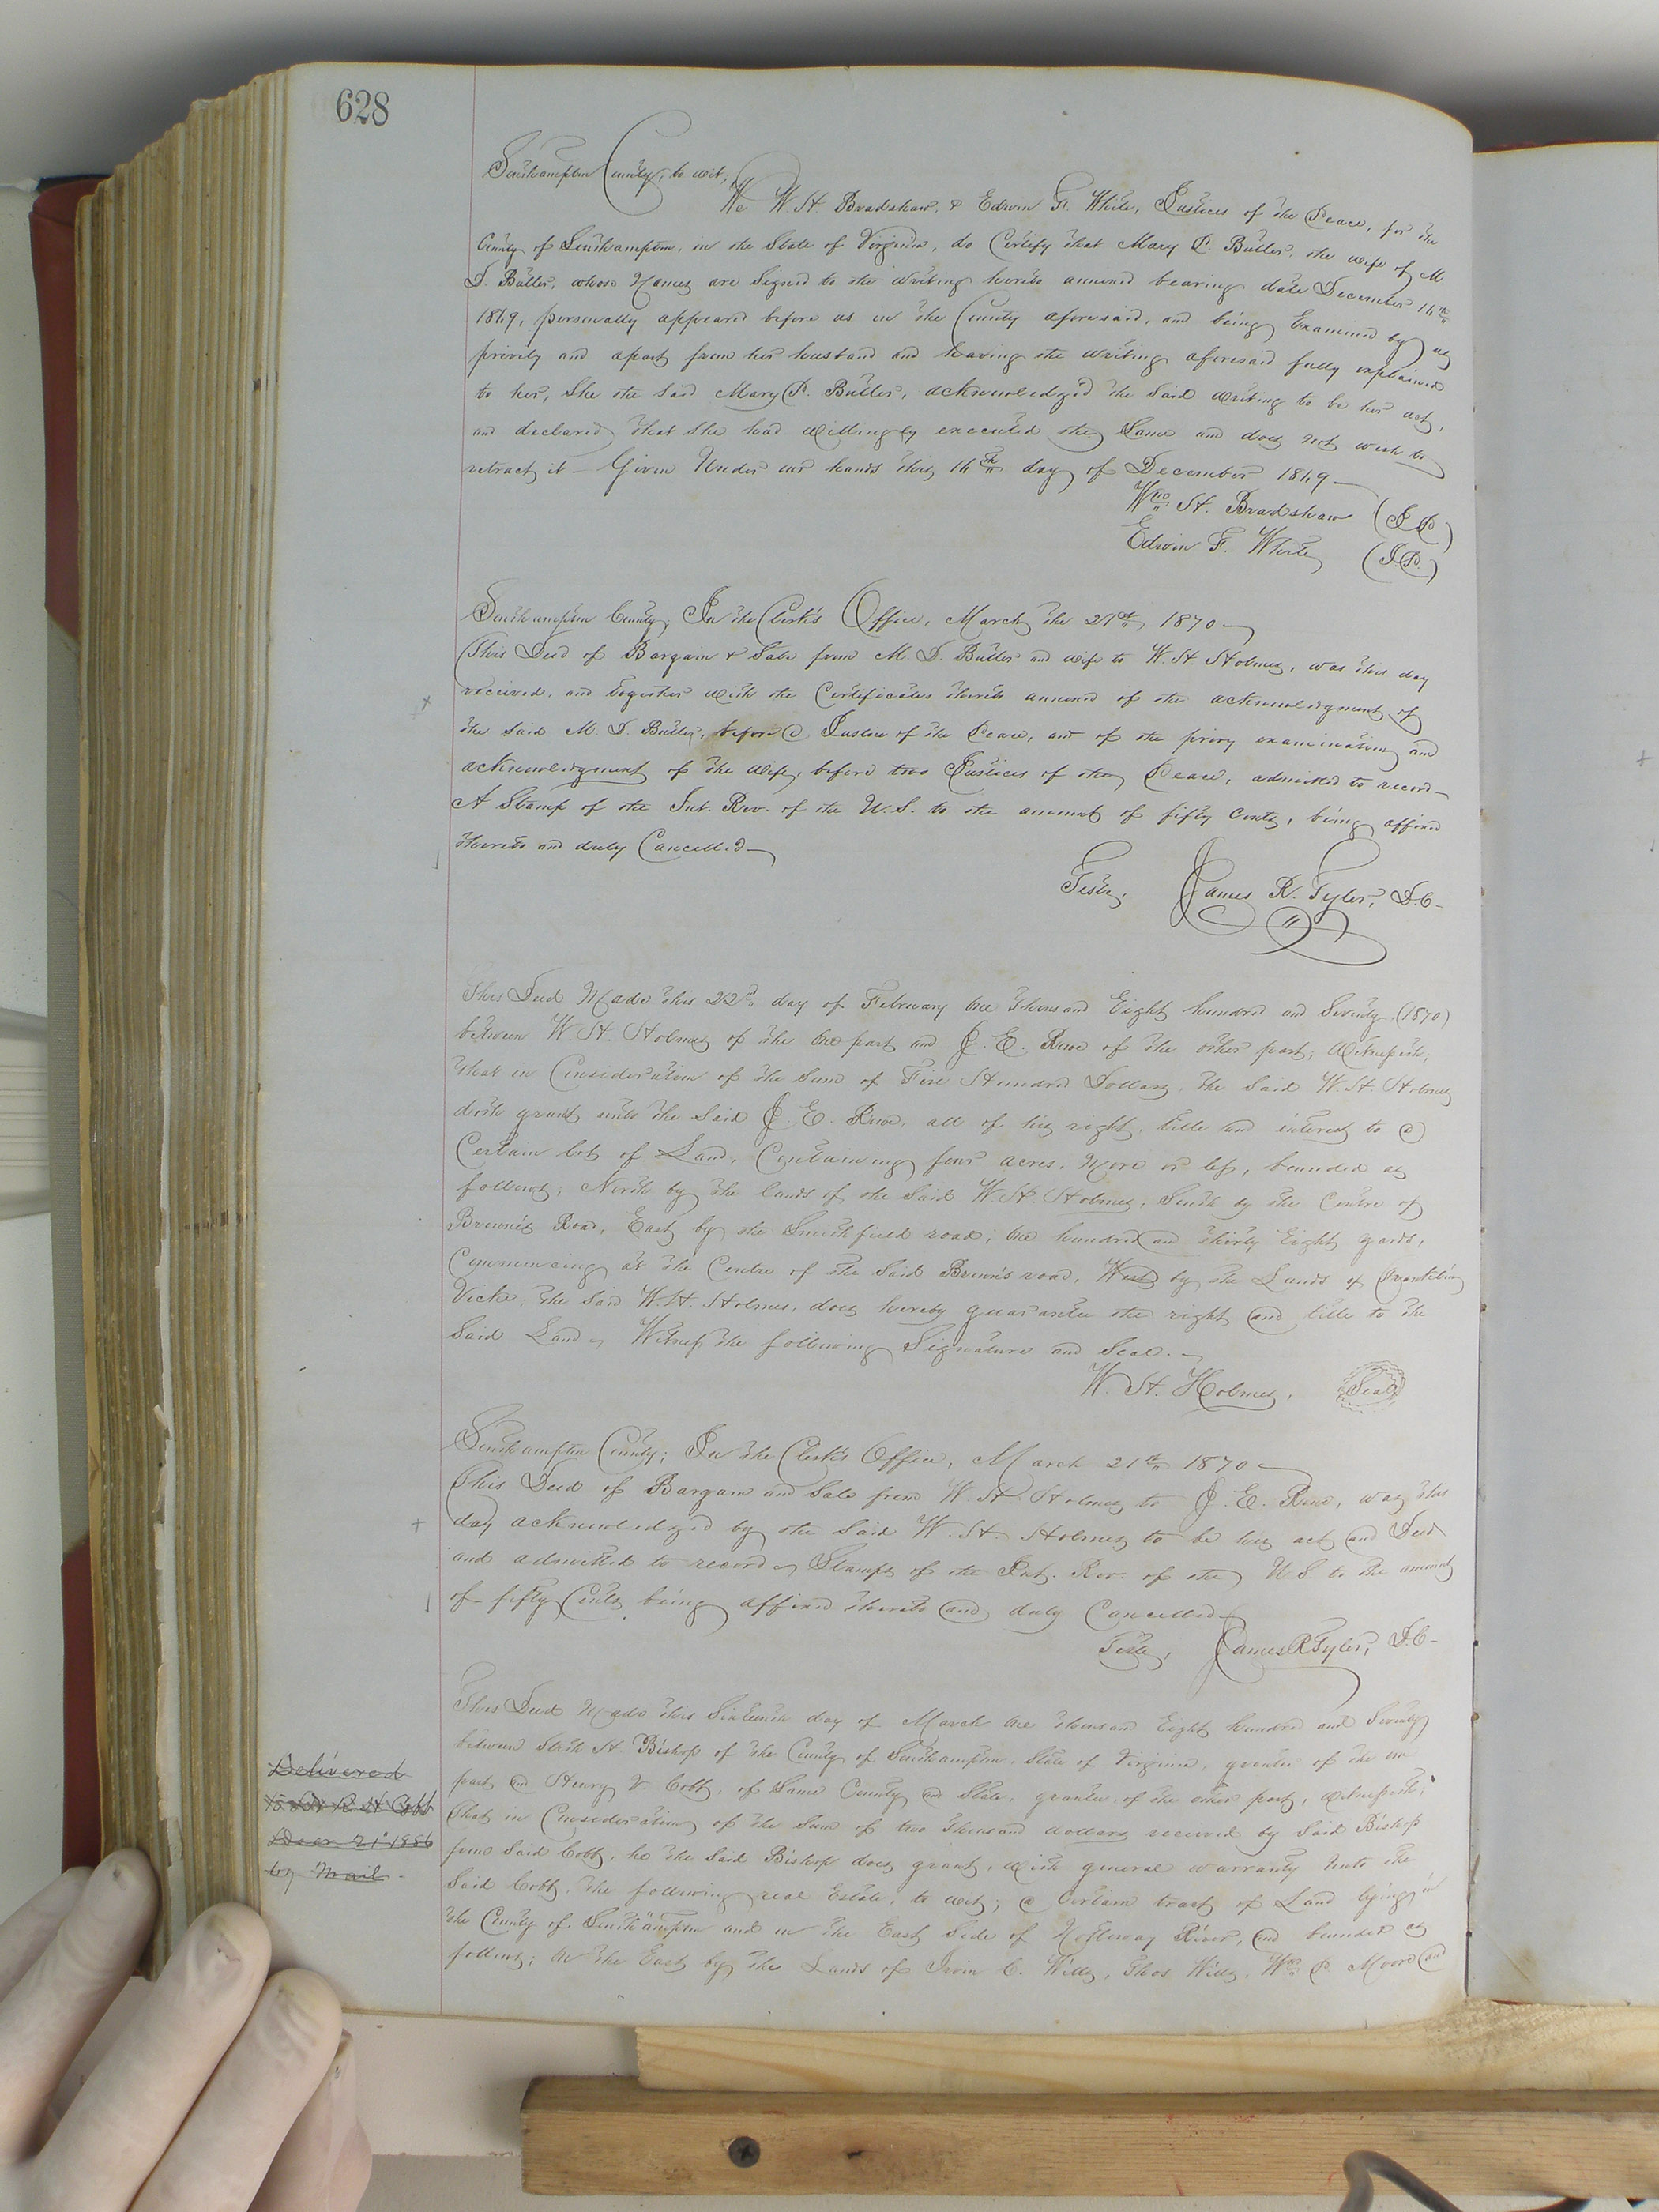 628
Southampton County, to wit;
We W. H. Bradshaw, & Edwin F. White, Justices of the Peace, for the
County of Southampton, in the State of Virginia, do Certify that Mary P. Butler, the wife of M.
D. Butler, whose Names are Signed to the writing hereto annexed bearing date December
1869, personally appeared before us in the County aforesaid, and being Examined by us
privily and apart from her husband and having the writing aforesaid fully explained
to her, She the said Mary P. Butler, acknowledged the said writing to be her act,
and declared that She had willingly executed the Same and does not wish to
retract it – Given Under our hands this day of December 1869 –
Wm H. Bradshaw (J.P.)
Edwin F. White (J.P.)
Southampton County, In the Clerk's Office, March the 21st, 1870 –
This Deed of Bargain & Sale from M. D. Butler and wife to W. H. Holmes, was this day
received, and together with the Certificates thereto annexed of the acknowledgment of
the said M. D. Butler, before a Justice of the Peace, and of the privy examination and
acknowledgment of the wife, before two Justices of the Peace, admitted to record –
A Stamp of the Int. Rev. of the U.S. to the amount of fifty Cents, being affixed
thereto and duly Cancelled –
Teste, James R. Tyler, D.C –
This Deed Made this 22d day of February One Thousand Eight hundred and Seventy, (1870)
between W. H. Holmes of the One part and J. E. of the other part; Witnesseth,
that in Consideration of the Sum of Five Hundred Dollars, the Said W. H. Holmes
doth grant unto the Said J. E. all of his right, title and interest to a
Certain lot of Land, Containing four acres, More or less, bounded as
follows; North by the lands of the Said W. H. Holmes, South by the Centre of
Brown's Road, East by the Smithfield road; One hundred and thirty Eight yards,
Commencing at the Centre of the Said Brown's road, West by the Lands of
Vick, the Said W. H. Holmes, does hereby guarantee the right and title to the
Said Land – Witness the following Signature and Seal. –
W. H. Holmes, Seal
Southampton County; In the Clerk's Office, March 21st 1870 –
This Deed of Bargain and Sale from W. H. Holmes to J. E. was this
day acknowledged by the Said W. H. Holmes to be his act and Deed
and admitted to record – Stamps of the Int. Rev. of the U.S. to the amount
of fifty Cents being affixed thereto and duly Cancelled –
Teste, James R Tyler, D.C –
This Deed Made this Sixteenth day of March One thousand Eight hundred and Seventy
between H. Bishop of the County of Southampton, State of Virginia, grantor of the one
part and Henry Cobb, of Same County and State, grantee of the other part, witnesseth;
That in Consideration of the Sum of two thousand dollars received by Said Bishop
from Said Cobb, he the Said Bishop does grant, with general warranty Unto the
Said Cobb, the following real Estate, to wit; a Certain tract of Land lying in
the County of Southampton and on the East Side of Nottoway River, and bounded as
follows; On the East by the Lands of C. Wills, Thos. Wills, Wm P. Moore and
Delivered
to R. H Cobb
Decr 21st 1886
by Mail –